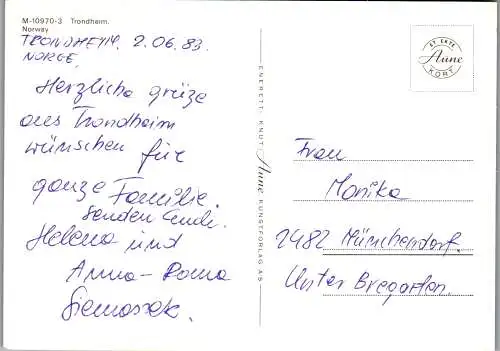 M-10970-3 Trondheim.
Norway
TRONDHEIM. 2.06.83.
NORGE.
Herzliche grüze
aus Trondheim
wünschen für
ganze Familie.
senden Andi.
Helena und
Anna-Roma
Siemaszek.
EVERETT: KNUT Aune KUNSTFORLAG AS
ET EKTE
Aune
KORT
Frau
Monika
2482 Münchendorf.
Unter Bregarten.